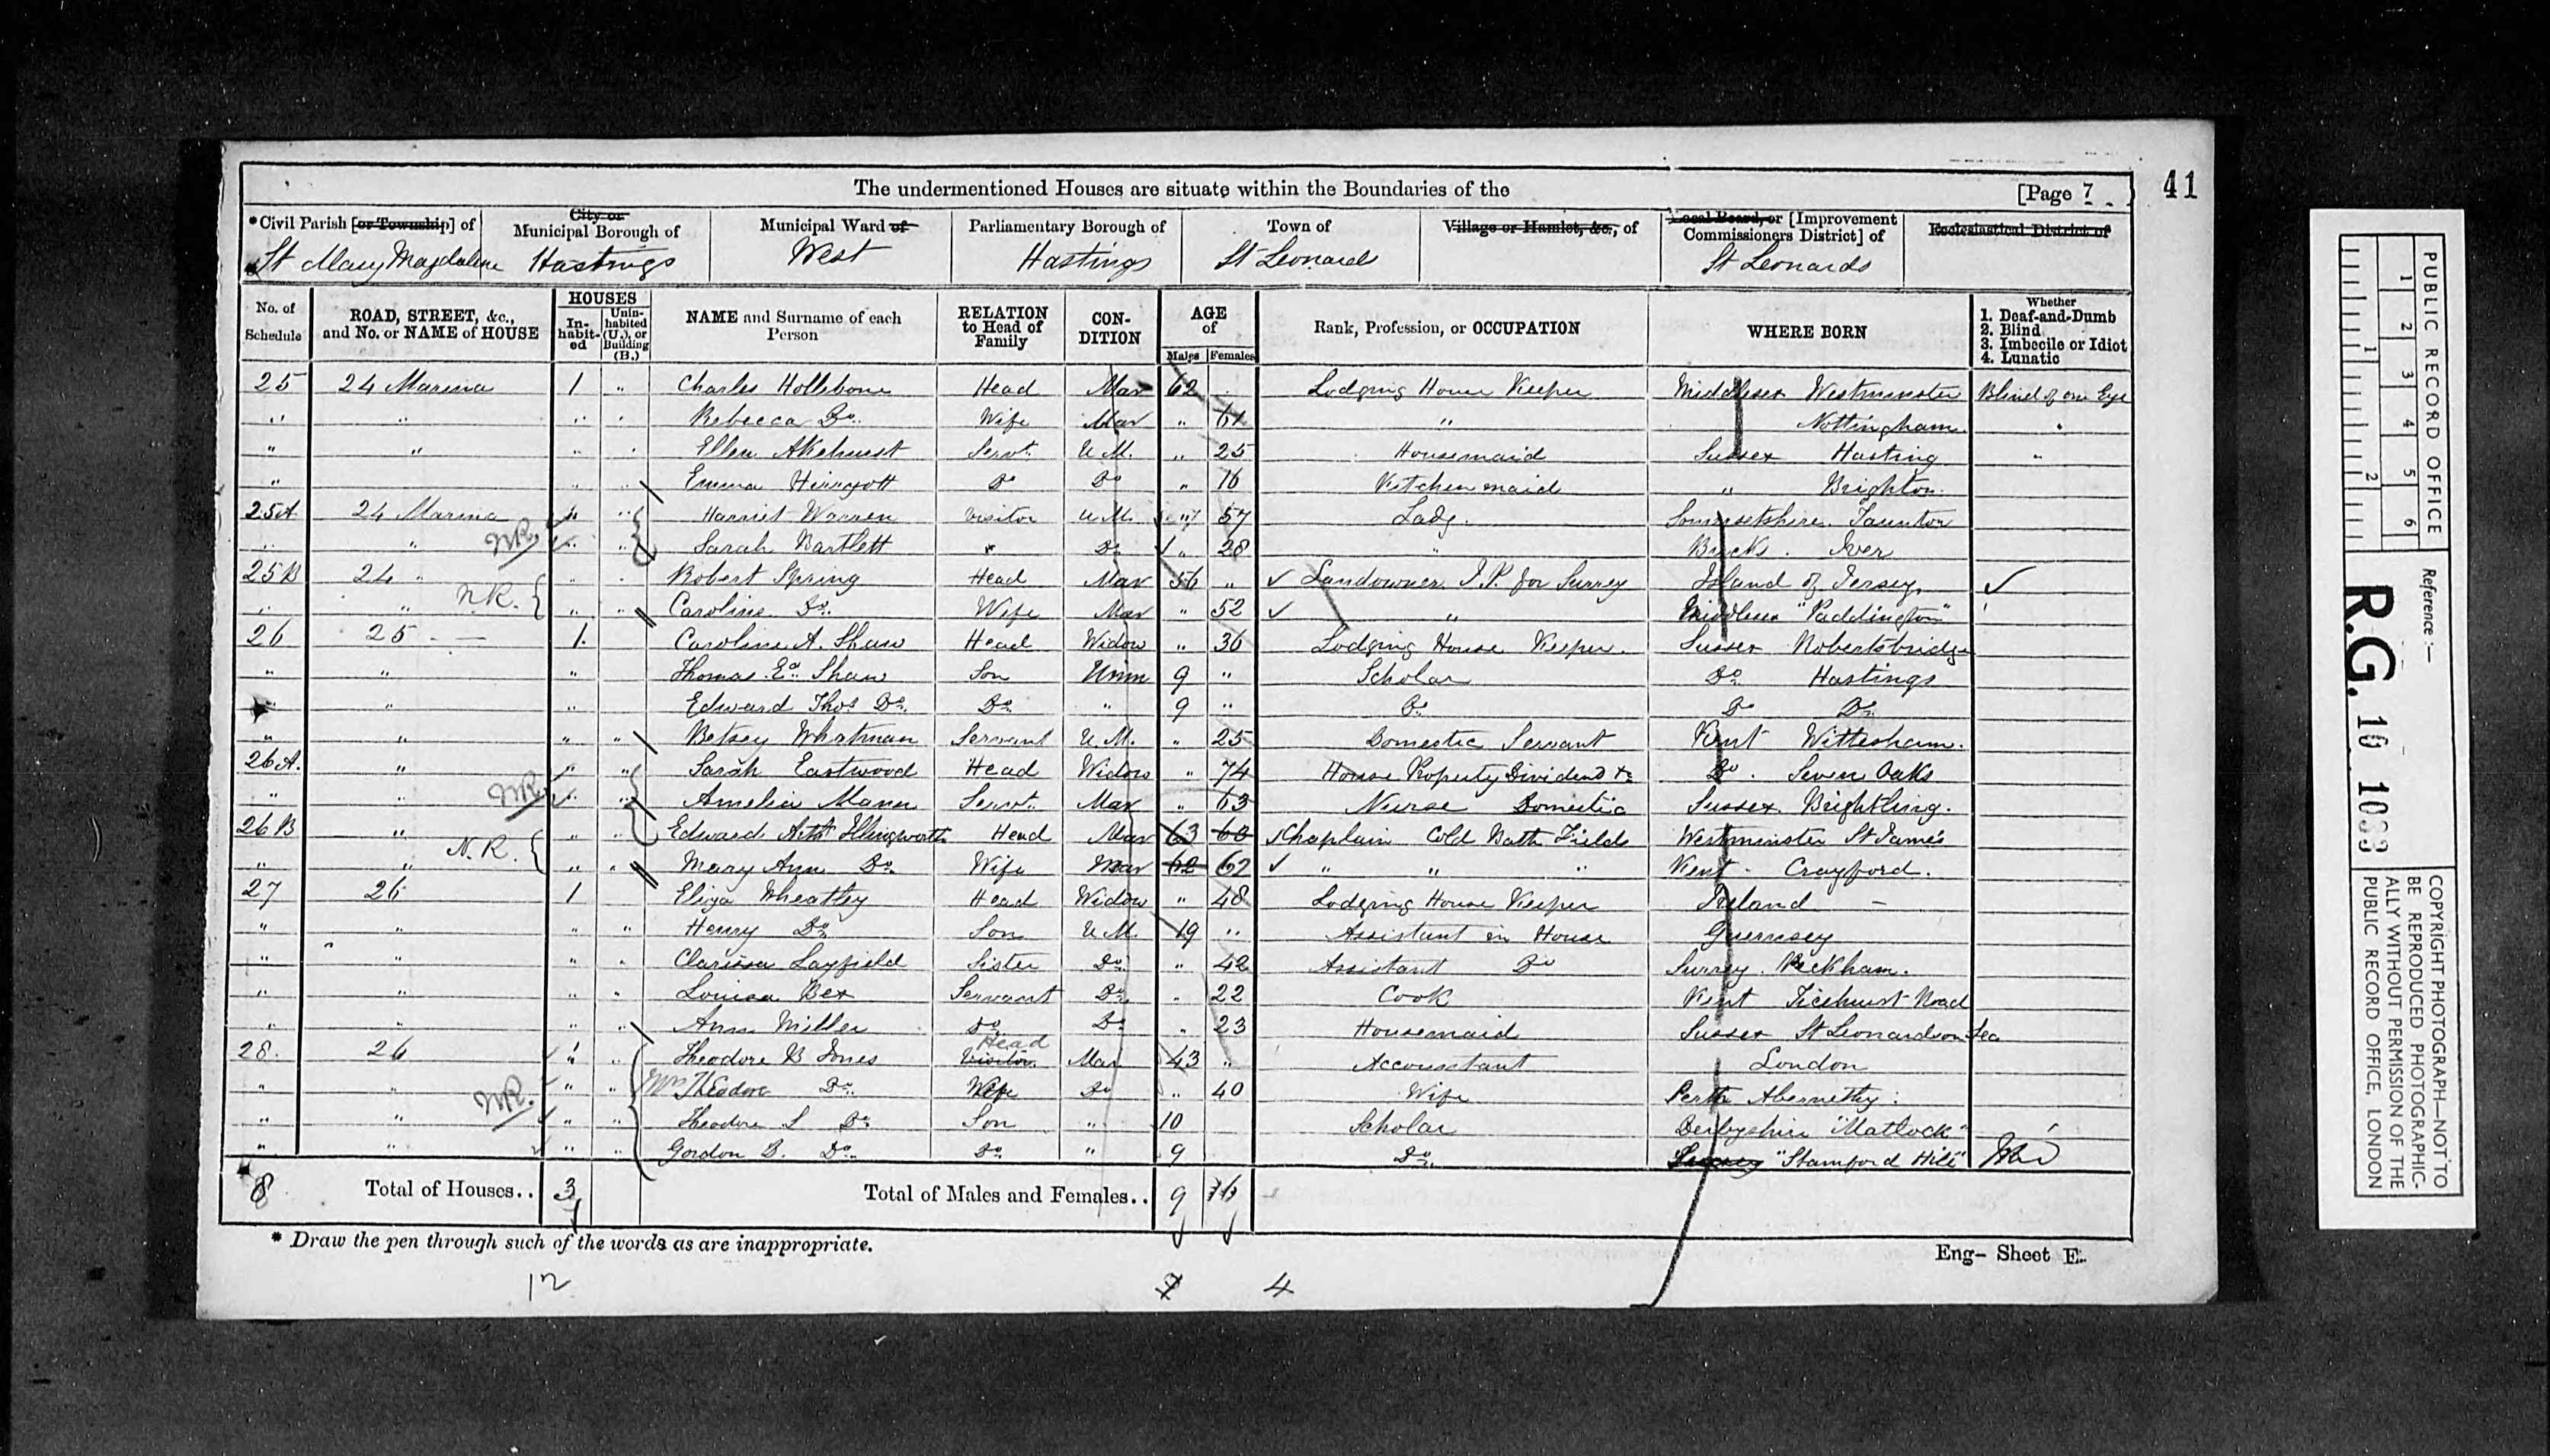 The undermentioned Houses are situate within the Boundaries of the
[Page 7 ]
41
*Civil Parish [or Township] of
St Mary Magdalene
City or Municipal Borough of
Hastings
Municipal Ward of
West
Parliamentary Borough of
Hastings
Town of
St Leonards
Village or Hamlet, &c., of
Local Board, or [Improvement Commissioners District] of
St Leonards
Ecclesiastical District of
No. of Schedule
ROAD, STREET, &c., and No. or NAME of HOUSE
HOUSES
In-habit-ed
Unin-habited (U.), or Building (B.)
NAME and Surname of each Person
RELATION to Head of Family
CON-DITION
AGE of
Males Females
Rank, Profession, or OCCUPATION
WHERE BORN
Whether
1. Deaf-and-Dumb
2. Blind
3. Imbecile or Idiot
4. Lunatic
25 24 Marina 1 " Charles Hollebone Head Mar 62 Lodging House Keeper Middlesex Westminster Blind of one Eye
" " " " Rebecca Do. Wife Mar " 61 " Nottingham "
" " " " Ellen Akehurst Servt. U M. " 25 Housemaid Sussex Hasting "
" " " Emma Do Do " 16 Kitchen maid " Brighton.
25A 24 Marina " " Harriet Warren Visitor U M. " 57 Lady. Somersetshire. Taunton
" " NR. " " Sarah Bartlett " Do " 28 " Bucks. Iver
25B 24 " " " Robert Spring Head Mar 56 " Landowner J.P. for Surrey Island of Jersey,
" " N.R. " " Caroline Do. Wife Mar " 52 " Middlesex "Paddington"
26 25 - — 1. Caroline A. Shaw Head Widow " 36 Lodging House Keeper. Sussex Robertsbridge
" " " Thomas. Ed. Shaw Son Unm 9 " Scholar Do Hastings
" " " Edward Thos. Do. Do. " 9 " Do. Do Do.
" " " " Betsey Whatman Servant U. M. " 25 Domestic Servant Kent Wittesham.
26A. " " " Sarah Eastwood Head Widow " 74 House Property Dividend &c Do. Seven Oaks
" " NR. " " Amelia Servt. Mar " 63 Nurse Domestic Sussex. Brightling.
26B " " " Edward Arthr Illingworth Head Mar 63 60 Chaplain Cold Bath Fields Westminster St James
" " N.R. " " Mary Ann Do. Wife Mar 62 62 " " " Kent - Crayford.
27 26 1 Eliza Wheatley Head Widow " 48 Lodging House Keeper Ireland —
" " " " Henry Do. Son U M. 19 " Assistant in House Guernsey
" " " " Clarissa Layfield Sister Do. " 42 Assistant Do Surrey. Peckham.
" " " " Louisa Bex Servant Do. " 22 Cook Kent Ticehurst Road
" " " " Ann Miller Do. Do " 23 Housemaid Sussex St Leonards on Sea
28. 26 " " Theodore B Jones Visitor. Head Mar. 43 " Accountant London
" " " " Mrs Theodore Do. Wife Do " 40 Wife Perth Abernethy.
" " NR. " " Theodore S Do. Son " 10 Scholar Derbyshire "Matlock"
" " " " Gordon B. Do. Do. " 9 Do. Surrey "Stamford Hill"
8 Total of Houses.. 3 Total of Males and Females.. 9 16
* Draw the pen through such of the words as are inappropriate.
Eng- Sheet E.
12 7 4
PUBLIC RECORD OFFICE
1 2 3 4 5 6
1 2
Reference :—
R.G. 10 1033
COPYRIGHT PHOTOGRAPH—NOT TO BE REPRODUCED PHOTOGRAPHIC-ALLY WITHOUT PERMISSION OF THE PUBLIC RECORD OFFICE, LONDON